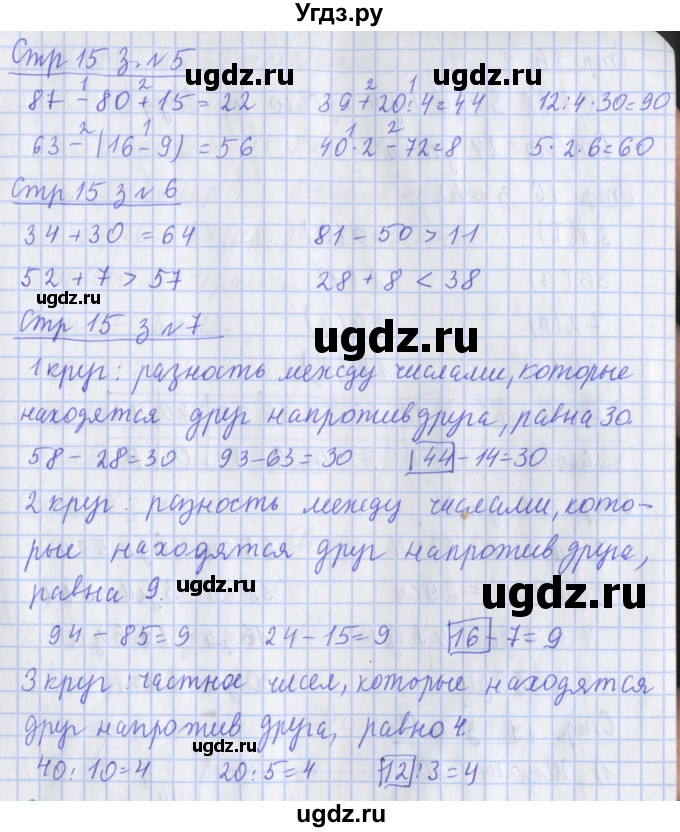 Угдз.ру
Стр 15 з. №5
87 - 80 + 15 = 22 39 + 20 : 4 = 44 12 : 4 · 30 = 90
63 - (16 - 9) = 56 40 · 2 - 72 = 8 5 · 2 · 6 = 60
Стр 15 з №6
34 + 30 = 64 81 - 50 > 11
52 + 7 > 57 28 + 8 < 38
Стр 15 з №7
1 круг: разность между числами, которые
находятся друг напротив друга, равна 30.
58 - 28 = 30 93 - 63 = 30 44 - 14 = 30
2 круг: разность между числами, кото-
рые находятся друг напротив друга,
равна 9.
94 - 85 = 9 24 - 15 = 9 16 - 7 = 9
3 круг: частное чисел, которые находятся
друг напротив друга, равно 4.
40 : 10 = 4 20 : 5 = 4 12 : 3 = 4
ugdz.ru
ugdz.ru
ugdz.ru
ugdz.ru
ugdz.ru
ugdz.ru
ugdz.ru
ugdz.ru
ugdz.ru
ugdz.ru